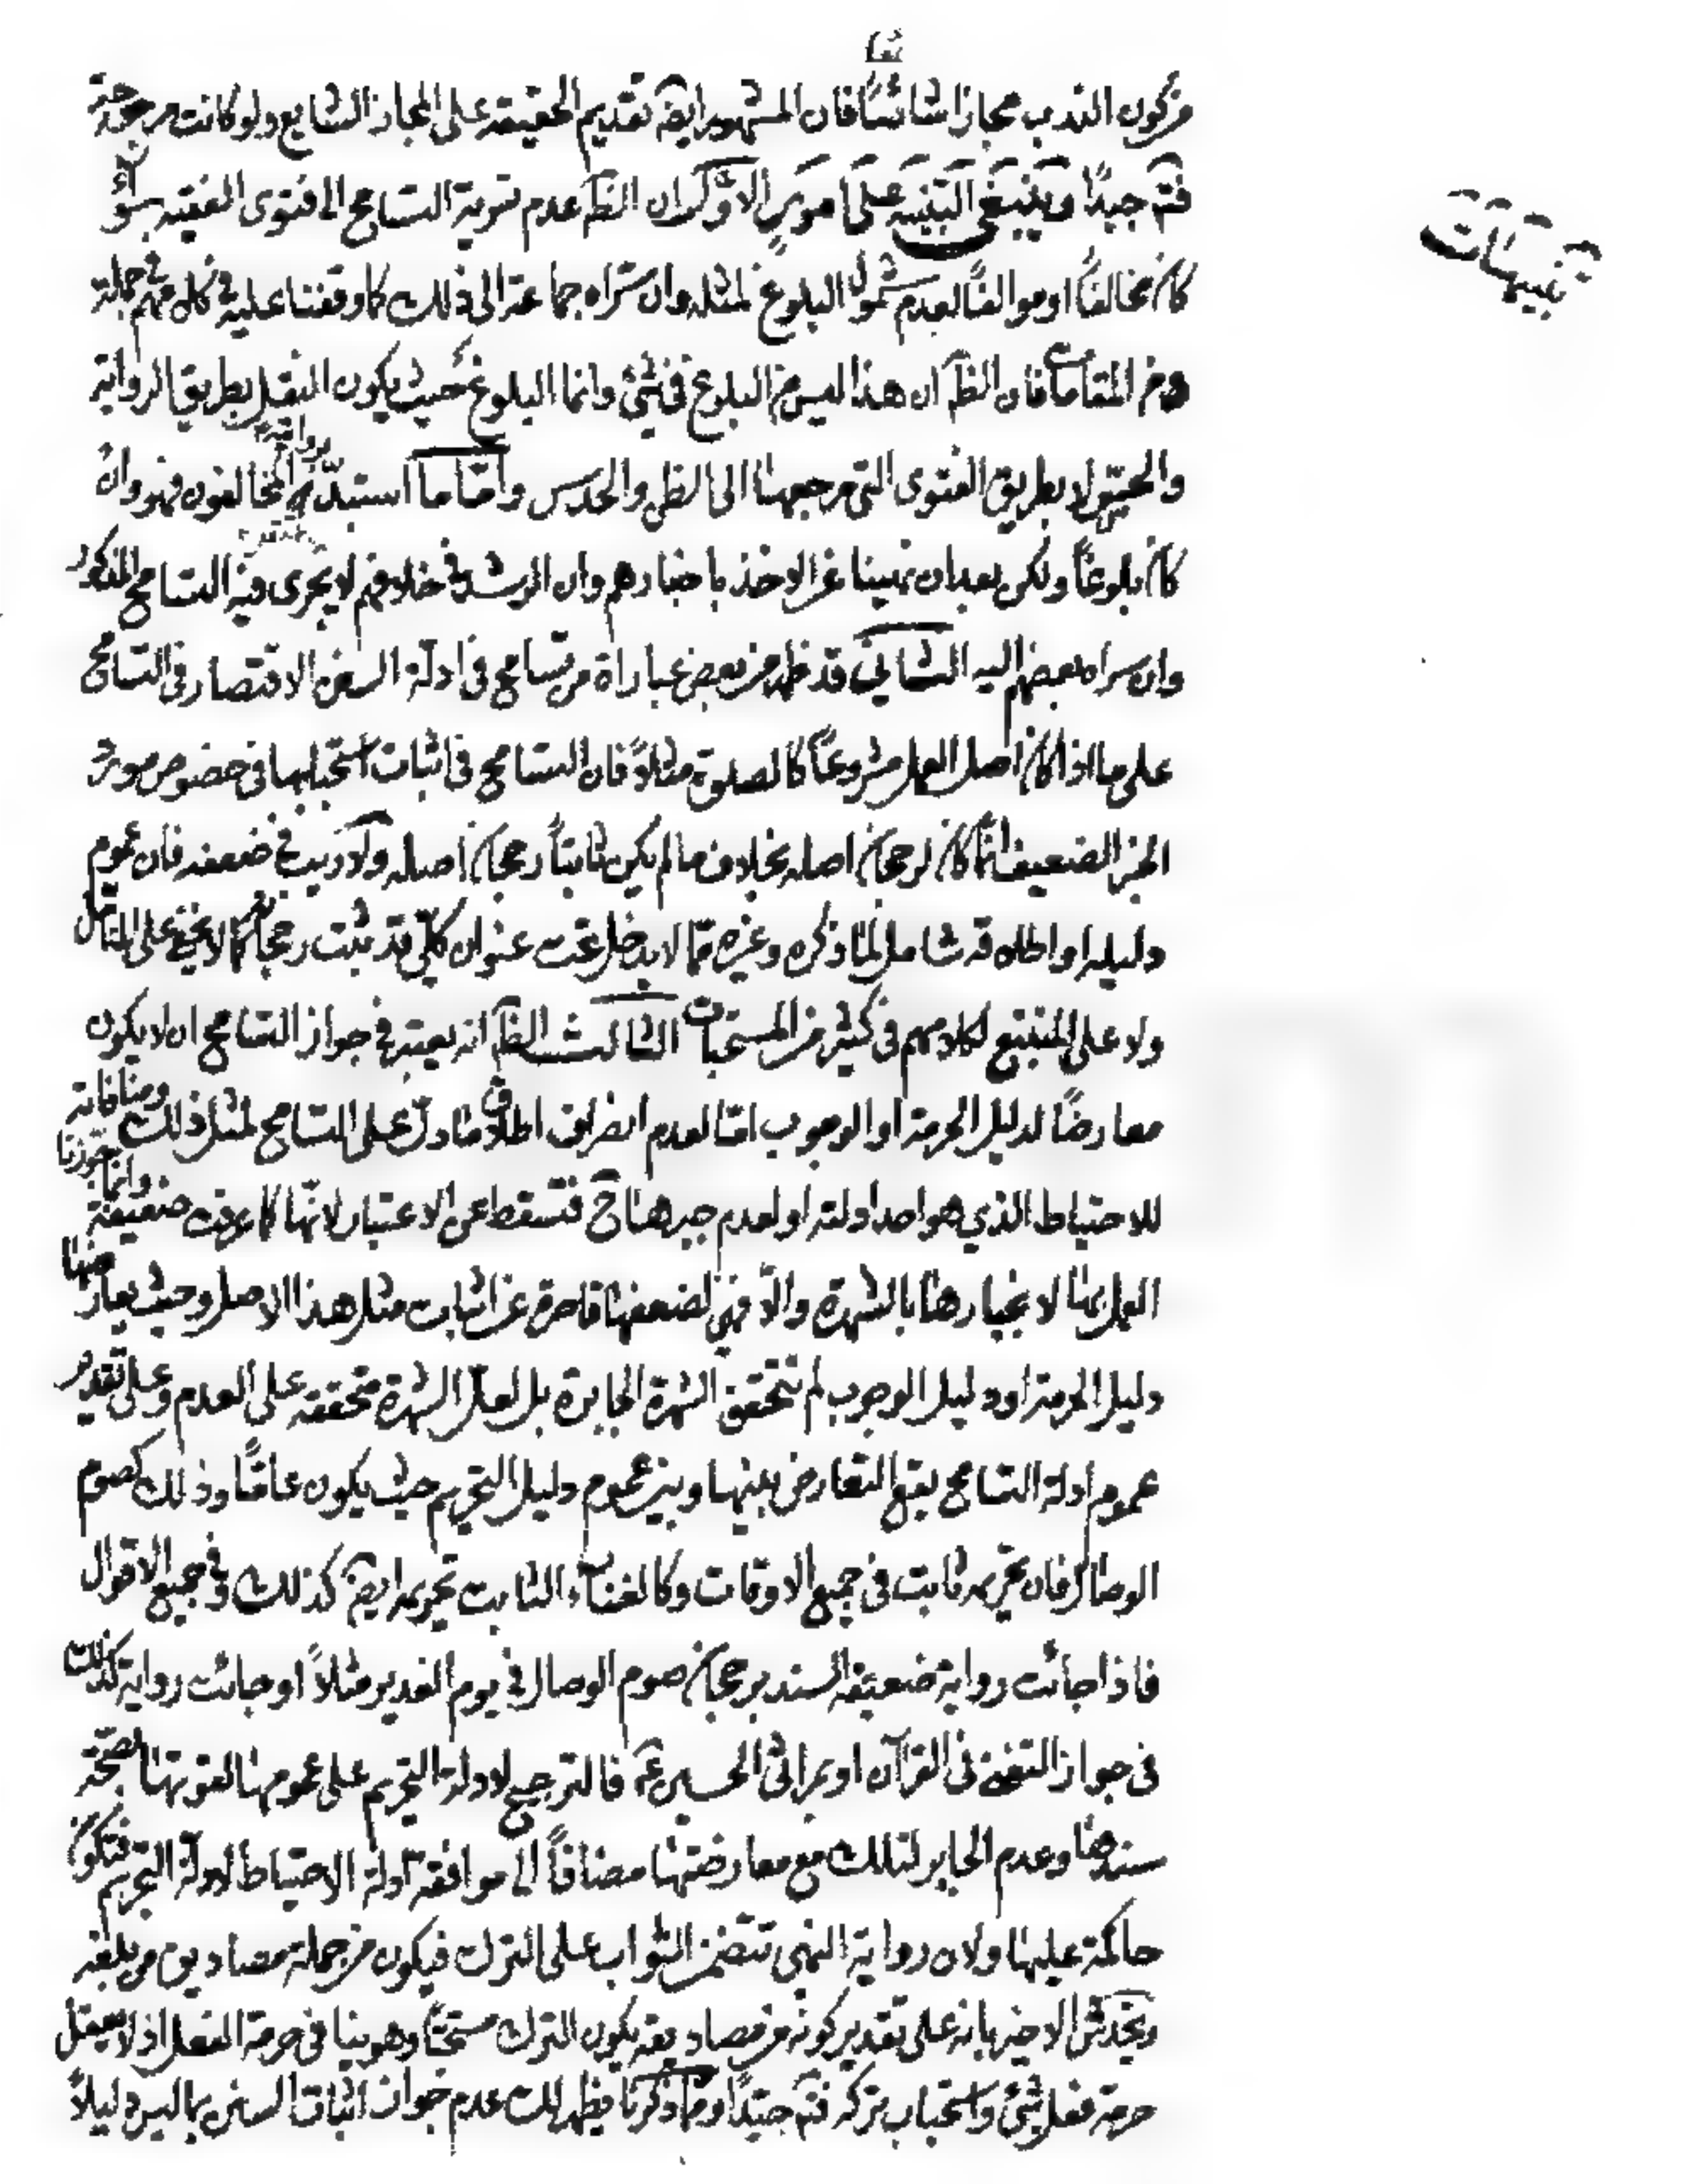 من كون الندب مجازا شائعًا فان المشهور ايضا تقديم الحقيقة على المجاز الشايع ولو كانت مرجوحة
فتم جيدًا وينبغي التنبيه على امور الاوّل ان الظ عدم تسرية التسامح الى فتوى الفقيه سواء
تنبيهات
كان مخالفًا او موالفًا لعدم شمول البلوغ لمثله وان سراه جماعة الى ذلك كما وقفنا عليه في كل منهم في جملة
من المقامات فان الظ ان هذا ليس من البلوغ في شئ وانما البلوغ حيث يكون النقل بطريق الرواية
والتحمّل لا بطريق الفتوى التي مرجعها الى الظن والحدس وامّا ما استبدّ به المخالفون فهو وان
رواية
كان بلوغًا ولكن بعد ان نهينا عن الاخذ باخبارهم وان الرشد في خلافهم لا يجرى فيه التسامح المذكور
وان سراه بعضهم اليه الثاني قد ظهر من بعض عباراة من تسامح في ادلّة السنن الاقتصار في التسامح
على ما اذا كان اصل العمل مشروعًا كالصلوة مثلاً فان التسامح في اثبات استحبابها في خصوص مورد
الخبر الضعيف انّما كان لرجحان اصله بخلاف ما لم يكن ثابتًا رجحان اصله ولا ريب في ضعفه فان عموم
دليله او اطلاقه شامل لما ذكره وغيره ممّا لا يدخل تحت عنوان كلّي قد ثبت رجحانه كما لا يخفى على المتامل
ولا على المتتبع لكلامهم في كثير من المستحبات الثالث الظ انه يعتبر في جواز التسامح ان لا يكون
معارضًا لدليل الحرمة او الوجوب امّا لعدم انصراف اطلاق ما دلّ على التسامح لمثل ذلك ومنافاته
للاحتياط الذي هو احد ادلته او لعدم جبرها ح فتسقط عن الاعتبار لانّها كما عرفت ضعيفة وانما جوزنا
العمل بها لانجبارها بالشهرة والّا فهي لضعفها قاصرة عن اثبات مثل هذا الاصل وحيث يعارضها
دليل الحرمة او دليل الوجوب لم تتحقق الشهرة الجابرة بل لعلّ الشهرة متحققه على العدم وعلى تقدير
عموم أدلة التسامح يقع التعارض بينها وبين عموم دليل التحريم حيث يكون عامًّا وذلك كصوم
الوصال فان تحريمه ثابت في جميع الاوقات وكالغناء الثابت تحريمه ايضا كذلك وفي جميع الاقوال
فاذا جائت رواية ضعيفة السند برجحان صوم الوصال في يوم الغدير مثلاً او جائت رواية كذلك
في جواز التغنى في القرآن او بمراثى الحسين ع فالترجيح لادلة التحريم على عمومها لقوتها بصحّة
سندها وعدم الجابر لتلك مع معارضتها مضافاً الى موافقة ادلة الاحتياط لادلّة التحريم فتكون
حاكمة عليها ولان رواية النهى تتضمن الثواب على الترك فيكون من جملة مصاديق من بلغه
ويخدش الاخير بانه على تقدير كونه من مصاديقه يكون الترك مستحبًّا وهو ينا في حرمة الفعل اذ لا يعقل
حرمة فعل شئ واستحباب تركه فتم جيّدًا وممّا ذكرنا يظهر لك عدم جواز اثبات السنن بما ليس دليلاً